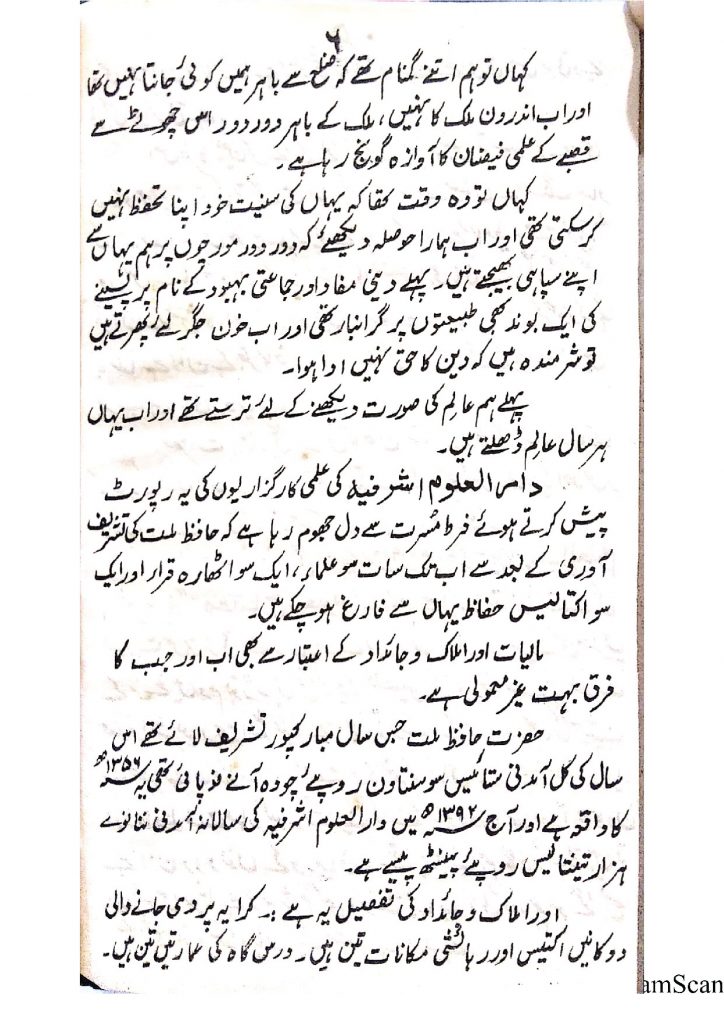 ۶
کہاں تو ہم اتنے گمنام تھے کہ ضلع سے باہر ہمیں کوئی جانتا نہیں تھا
اور اب اندرون ملک کا نہیں، ملک کے باہر دور دور اس چھوٹے سے
قصبے کے علمی فیضان کا آوازہ گونج رہا ہے۔
کہاں تو وہ وقت تھا کہ یہاں کی سنیت خود اپنا تحفظ نہیں
کر سکتی تھی اور اب ہمارا حوصلہ دیکھئے کہ دور دور مورچوں پر ہم یہاں سے
اپنے سپاہی بھیجتے ہیں۔ پہلے دینی مفاد اور جماعتی بہبود کے نام پر پسینے
کی ایک بوند بھی طبیعتوں پر گرانبار تھی اور اب خون جگر لئے پھرتے ہیں
تو شرمندہ ہیں کہ دین کا حق نہیں ادا ہوا۔
پہلے ہم عالم کی صورت دیکھنے کے لئے ترستے تھے اور اب یہاں
ہر سال عالم ڈھلتے ہیں۔
دار العلوم اشرفیہ کی علمی کارگزاریوں کی یہ رپورٹ
پیش کرتے ہوئے فرط مسرت سے دل جھوم رہا ہے کہ حافظ ملت کی تشریف
آوری کے بعد سے اب تک سات سو علماء، ایک سو اٹھارہ قراء اور ایک
سو اکتالیس حفاظ یہاں سے فارغ ہو چکے ہیں۔
مالیات اور املاک و جائداد کے اعتبار سے بھی اب اور جب کا
فرق بہت غیر معمولی ہے۔
حضرت حافظ ملت جس سال مبارکپور تشریف لائے تھے اس
سال کی کل آمدنی ستائیس سو ستاون روپئے چودہ آنے نو پائی تھی یہ ۱۳۵۶ھ
کا واقعہ ہے اور آج ۱۳۹۲ھ میں دار العلوم اشرفیہ کی سالانہ آمدنی ننانوے
ہزار تینتالیس روپئے پینسٹھ پیسے ہے۔
اور املاک و جائداد کی تفصیل یہ ہے :۔ کرایہ پر دی جانے والی
دوکانیں اکتیس اور رہائشی مکانات تین ہیں۔ درس گاہ کی عمارتیں تین ہیں۔
amScan